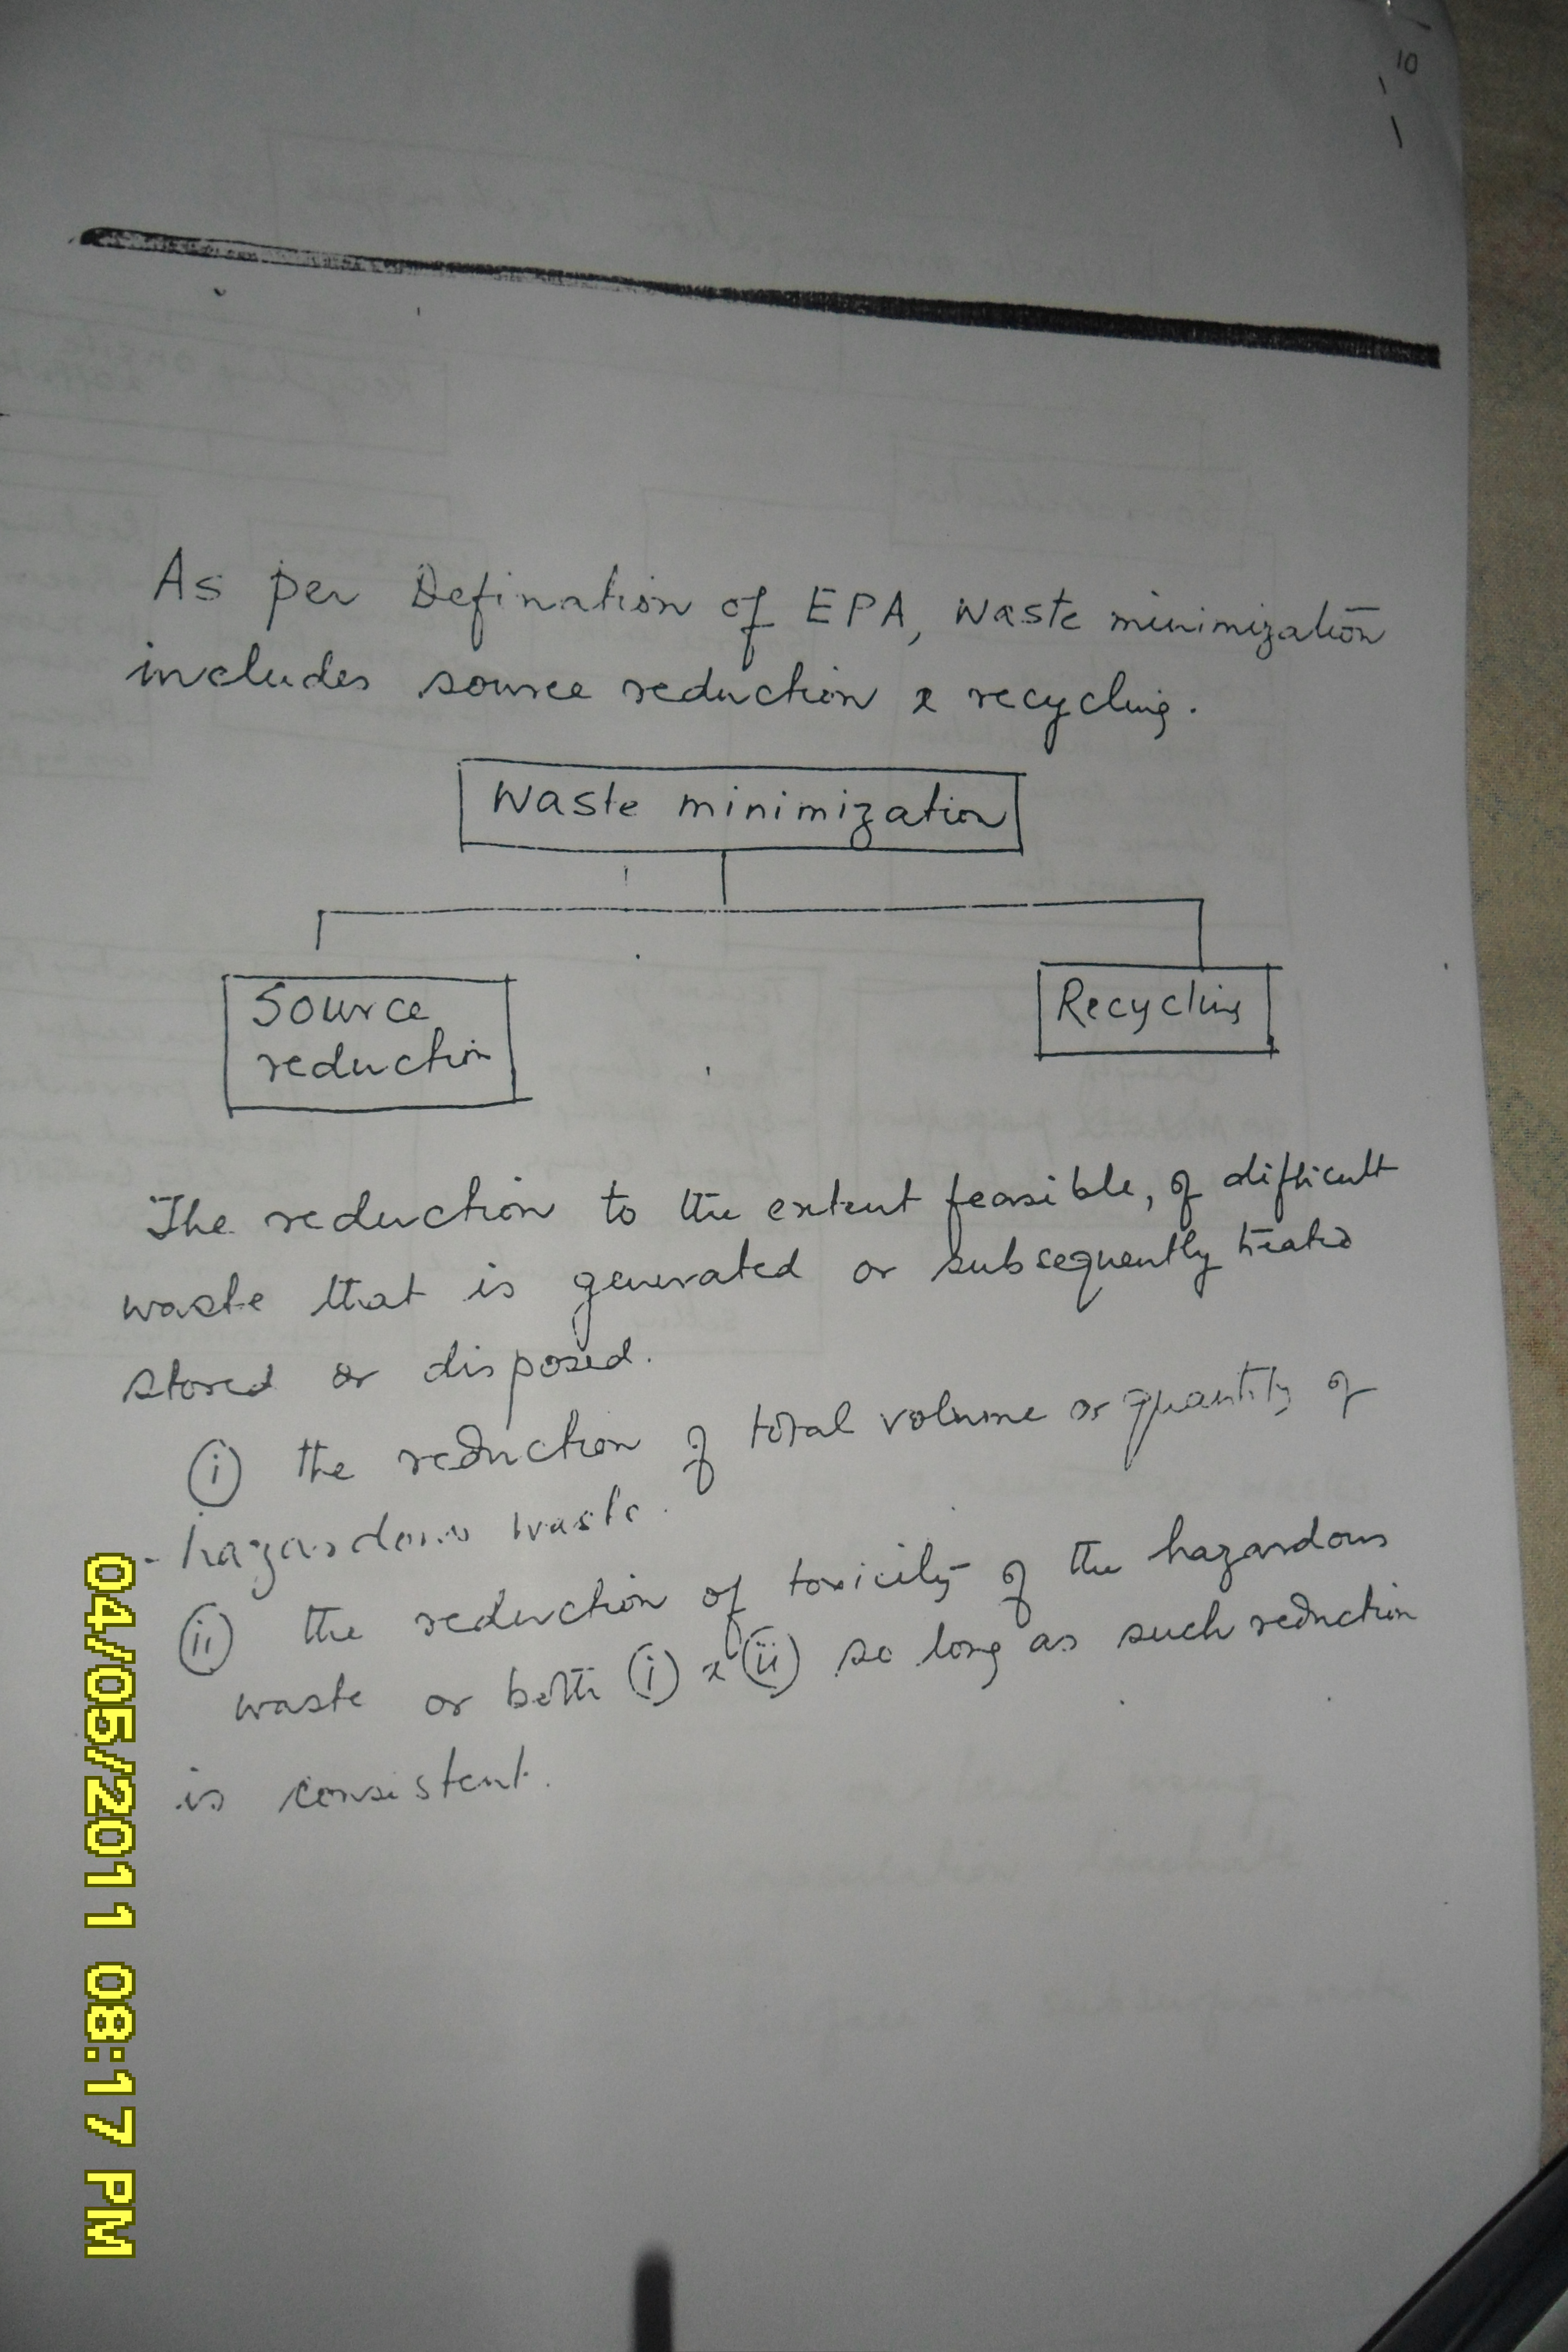 10
As per Defination of EPA, Waste minimization
includes source reduction & recycling.
Waste minimization
Source
reduction
Recycling
The reduction to the extent feasible, of difficult
waste that is generated or subsequently treated
stored or disposed.
(i) the reduction of total volume or quantity of
hazardous waste.
(ii) the reduction of toxicity of the hazardous
waste or both (i) & (ii) so long as such reduction
is consistent.
04/05/2011 08:17 PM